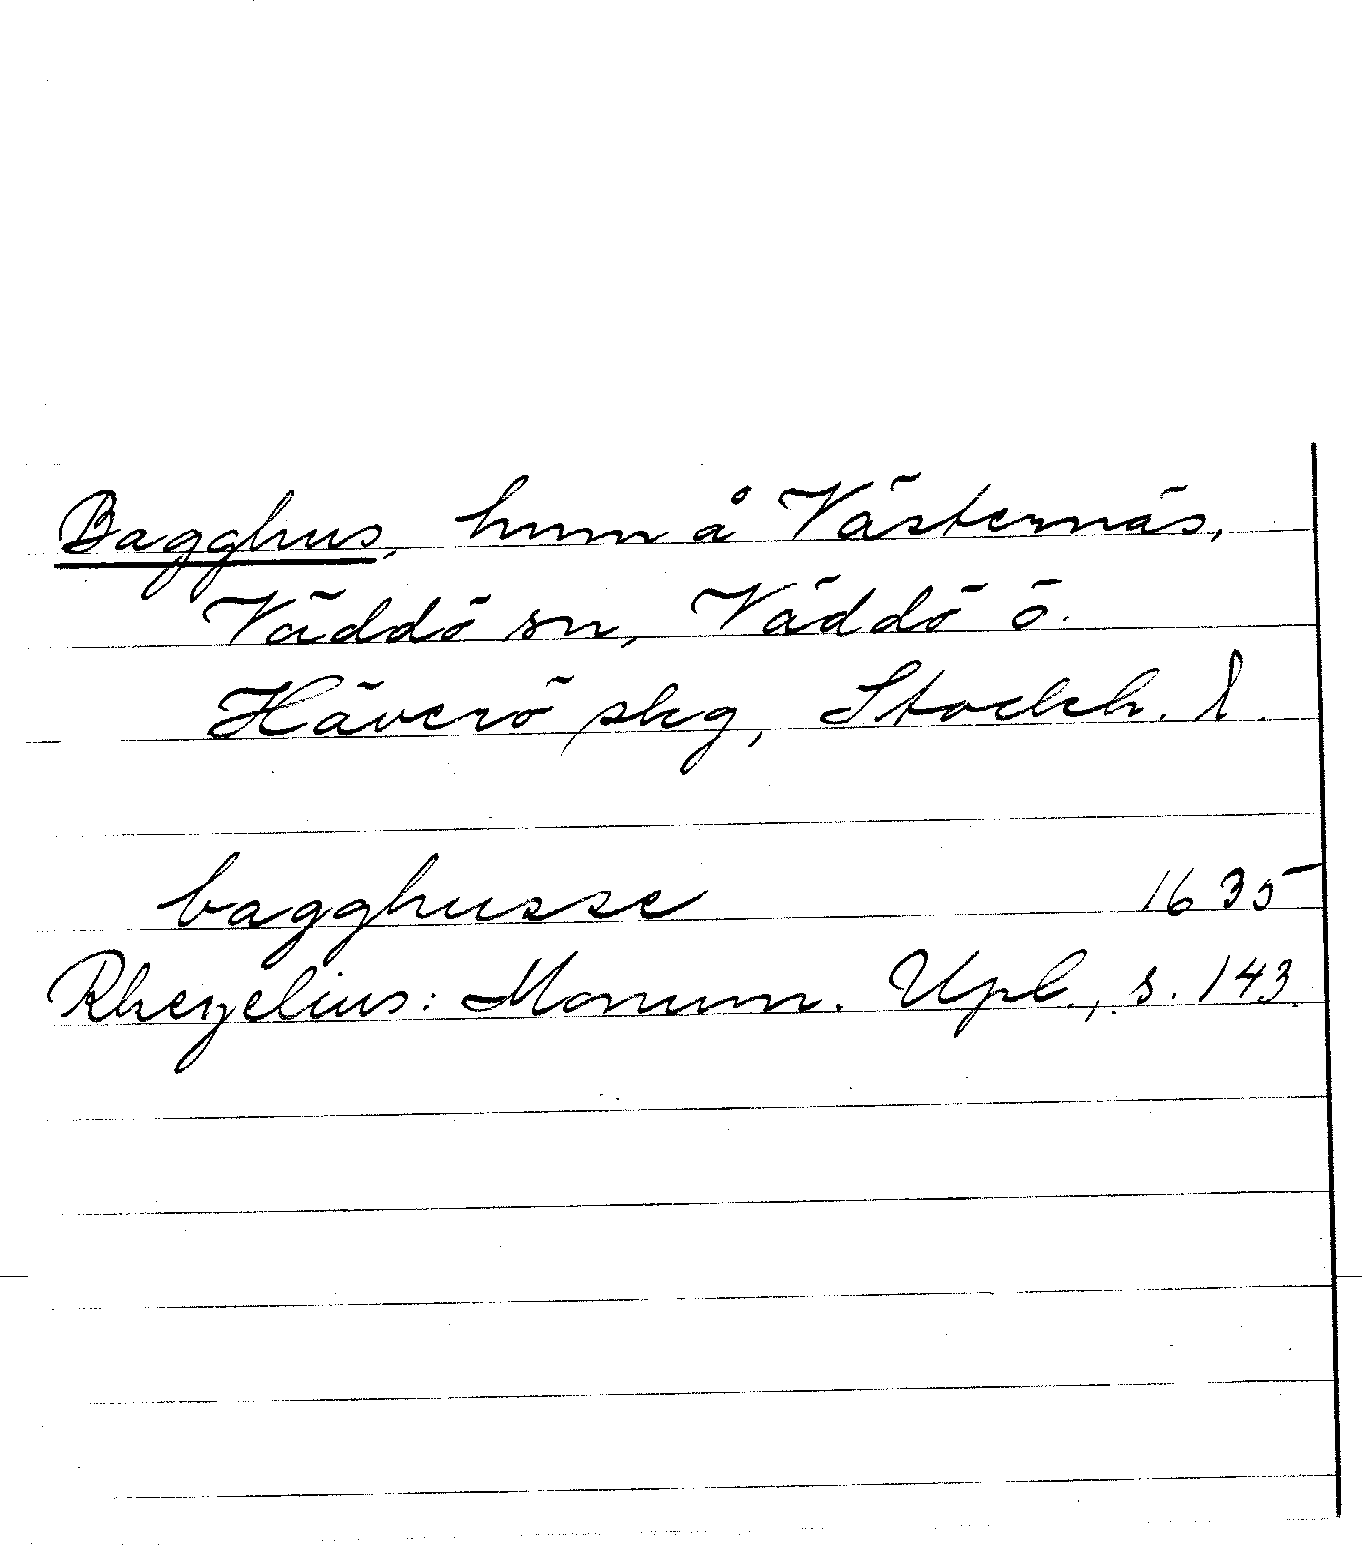 Bagghus, hmn å Västernäs,
Väddö sn, Väddö o.
Häverö skg, Stockh. l.
bagghusse 1635
Rhezelius: Monum. Upl., s. 143.